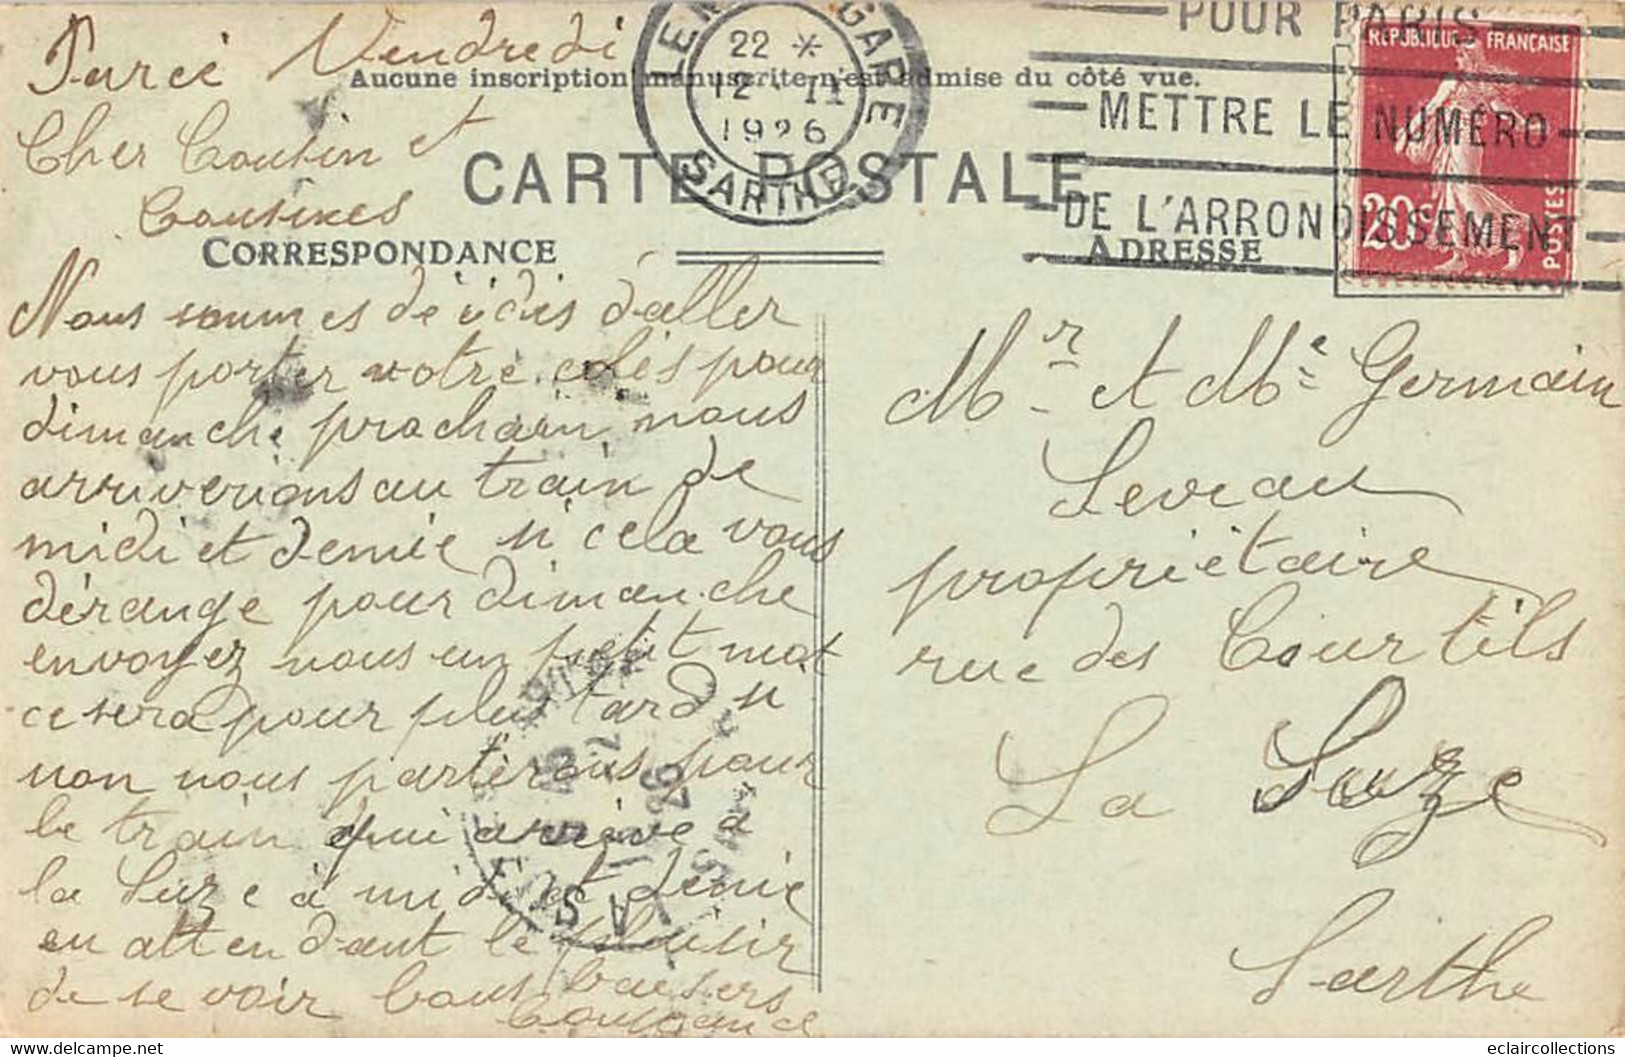 Parcé Vendredi
Aucune inscription manuscrite n'est admise du côté vue.
Cher Cousin et
Cousines
CARTE POSTALE
CORRESPONDANCE
ADRESSE
GARE
22 *
12 - II
1926
SARTHE
POUR PARIS
METTRE LE NUMÉRO
DE L'ARRONDISSEMENT
REPUBLIQUE FRANÇAISE
20c
POSTES
Nous sommes décidés d'aller
vous porter votre colis pour
dimanche prochain, nous
arriverions au train de
midi et demie si cela vous
dérange pour dimanche
envoyez nous un petit mot
ce sera pour plus tard si
non nous partirons pour
le train qui arrive à
la Suze à midi et demie
en attendant le plaisir
de se voir bons baisers
Mr et Me Germain
Leveau
propriétaire
rue des Courtils
La Suze
Sarthe
www.delcampe.net
eclaircollections